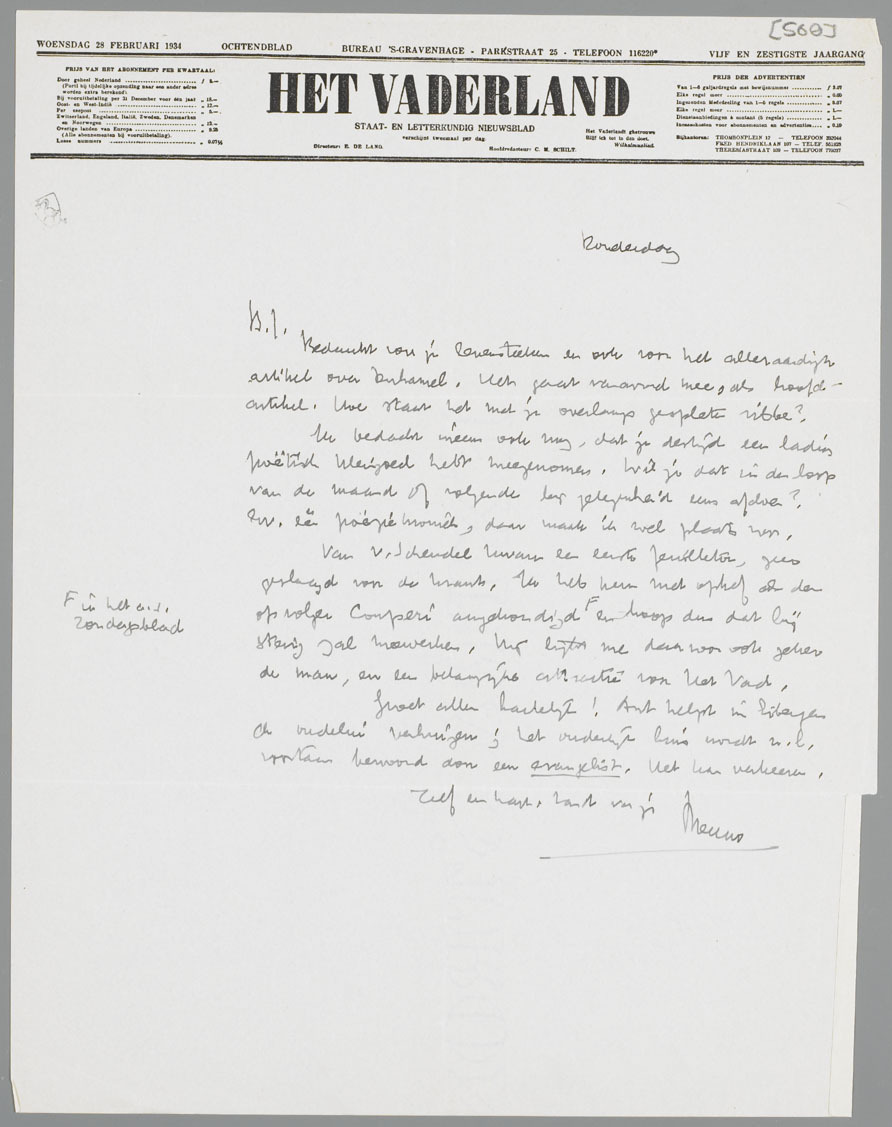 [560]
WOENSDAG 28 FEBRUARI 1934 OCHTENDBLAD BUREAU 'S-GRAVENHAGE - PARKSTRAAT 25 - TELEFOON 116220* VIJF EN ZESTIGSTE JAARGANG
PRIJS VAN HET ABONNEMENT PER KWARTAAL:
Door geheel Nederland
(Porti bij tijdelijke opzending naar een ander adres
worden extra berekend).
Bij vooruitbetaling per 31 December voor één jaar
Oost- en West-Indië
Per zeepost
Zwitserland, Engeland, Italië, Zweden, Denemarken
en Noorwegen
Overige landen van Europa
(Alle abonnementen bij vooruitbetaling).
Losse nummers
HET VADERLAND
STAAT- EN LETTERKUNDIG NIEUWSBLAD
verschijnt tweemaal per dag.
Directeur: E. DE LANG. Hoofdredacteur: C. M. SCHILT.
Het Vaderlandt ghetrouwe
Blijf ick tot in den doet.
Wilhelmuslied.
PRIJS DER ADVERTENTIEN
Van 1—5 galjardregels met bewijsnummer
Elke regel meer
Ingezonden Mededeeling van 1—5 regels
Elke regel meer
Dienstaanbiedingen à contant (5 regels)
Incassokosten voor abonnementen en advertentiën
Bijkantoren: THOMSONPLEIN 17 — TELEFOON
FRED HENDRIKLAAN 107 — TELEF.
THERESIASTRAAT 109 — TELEFOON
Donderdag
B.J.
Bedankt voor je levensteeken en ook voor het alleraardigste
artikel over Duhamel. Het gaat vanavond mee, als hoofd-
artikel. Hoe staat het met je overlangs gespleten ribbe?
Ik bedacht ineens ook nog, dat je destijds een lading
poëtisch kleingoed hebt meegenomen. Wil je dat in den loop
van de maand of volgende bij gelegenheid eens afdoen?
Ev. één poëziekroniek, daar maak ik wel plaats voor.
Van v. Schendel kwam een eerste feuilleton, zeer
geslaagd voor de krant. Ik heb hem met ophef als den
opvolger Couperi aangekondigd F en hoop dus dat hij
F in het a.s.
Zondagsblad
stevig zal meewerken. Hij lijkt me daarvoor ook geheel
de man, en een belangrijke attractie voor Het Vad.
Groet allen hartelijk! Ant helpt in Eibergen
de oudelui verhuizen; het ouderlijk huis wordt n.l.
voortaan bewoond door een evangelist. Het kan verkeeren.
Zelf een hart. hand van je
Menno